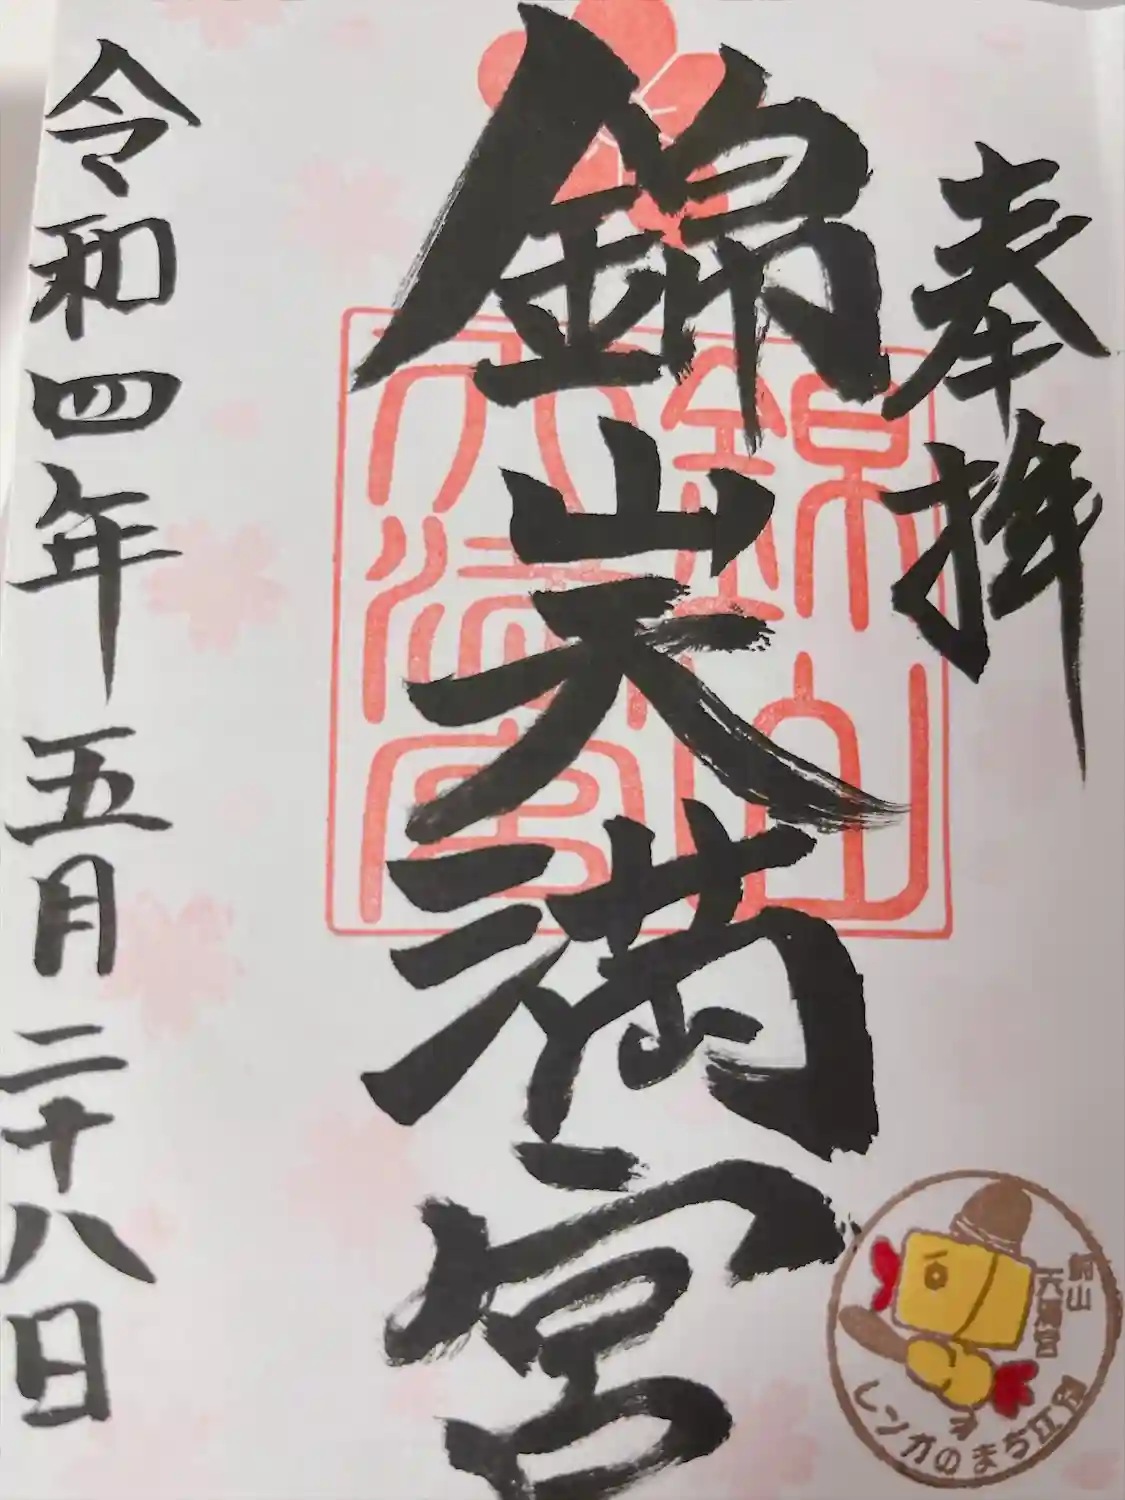 奉拝
錦山天満宮
令和四年五月二十八日
錦山
天満宮
錦山
天満宮
レンガのまち江別